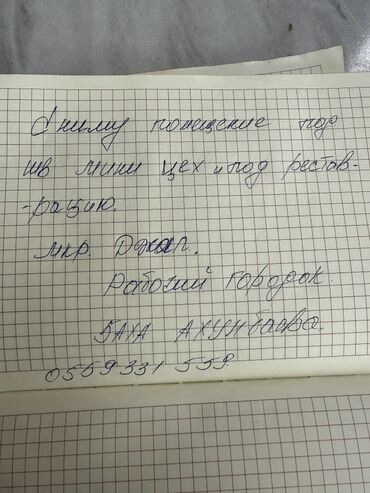 Сниму помещение под
шв мини цех и под рестав-
-рацию.
мкр. Джал.
Рабочий городок.
БАХА АХУНбаева.
0559331 559